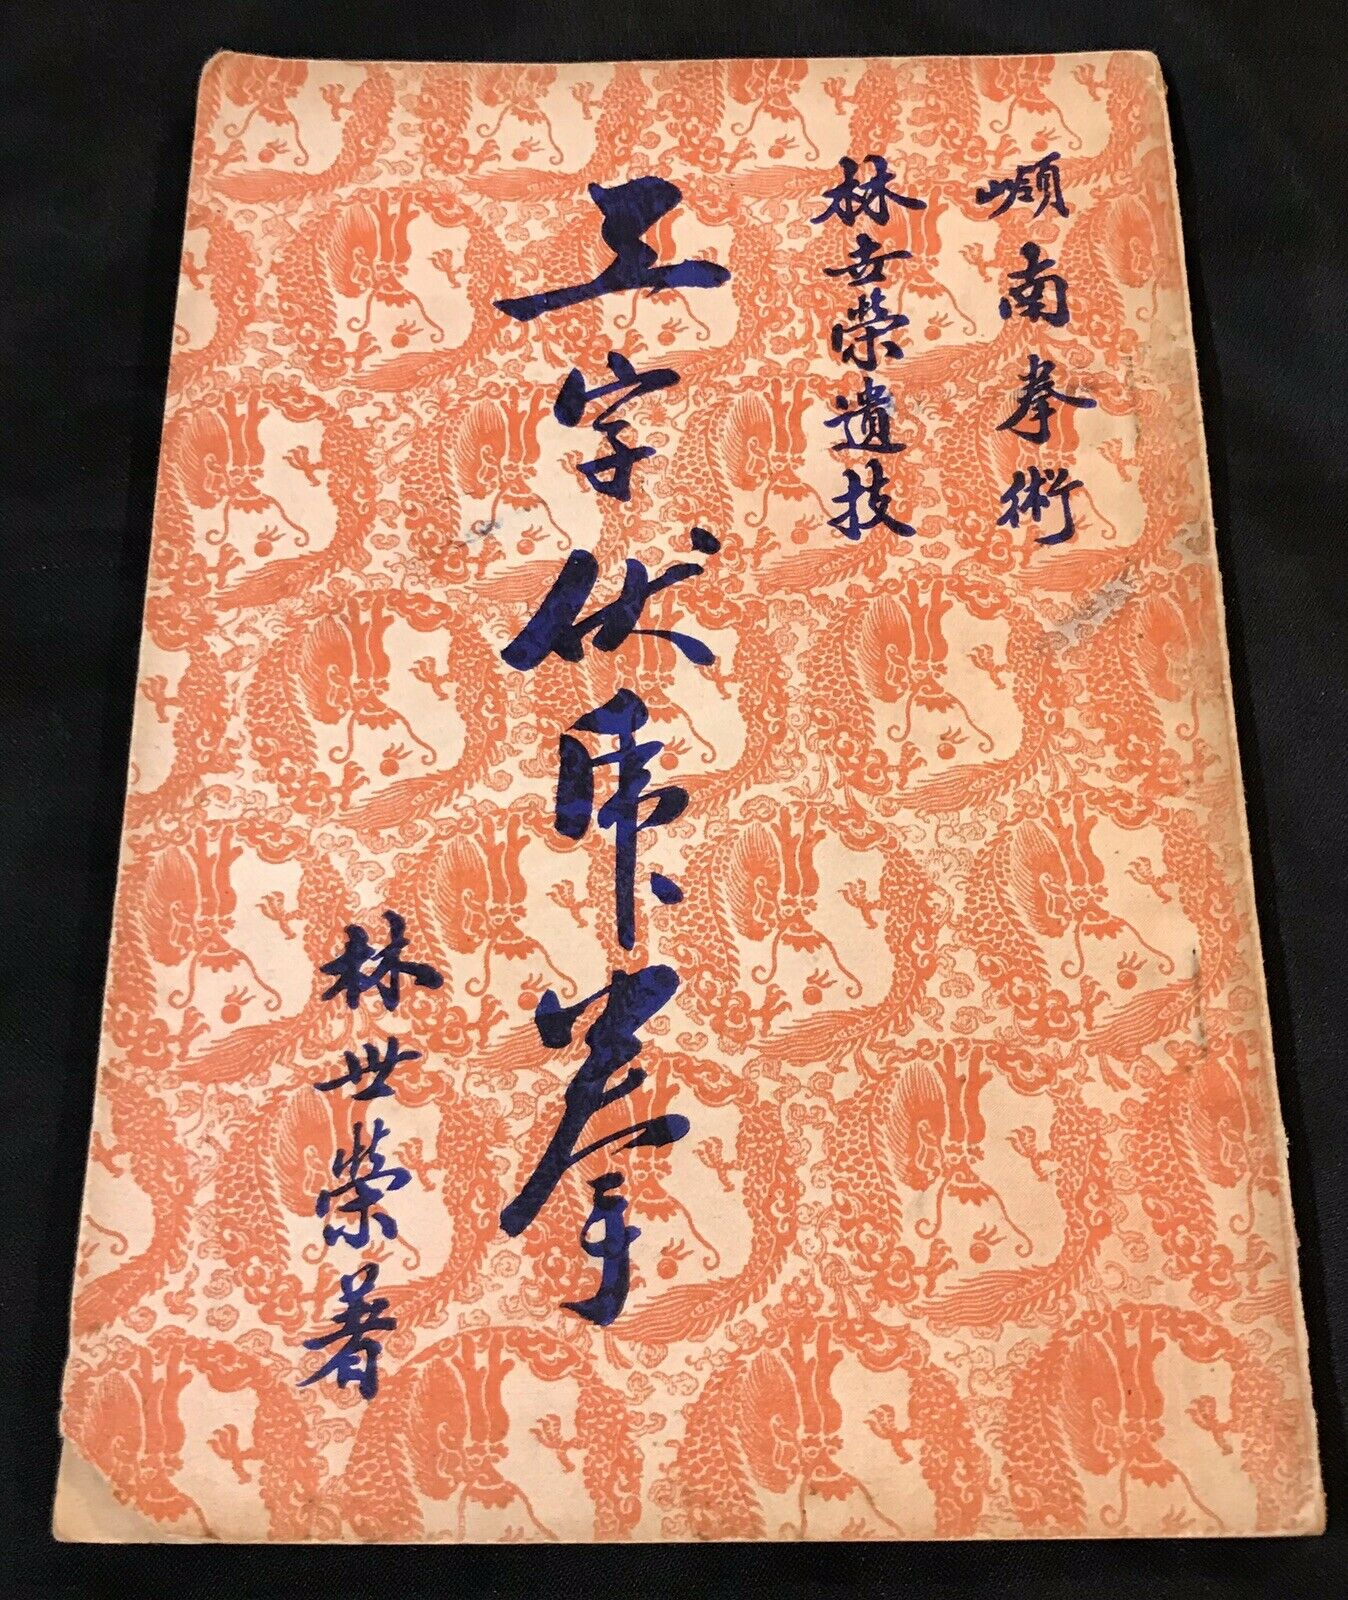 嶺南拳術
林世榮遺技
工字伏虎拳
林世榮著